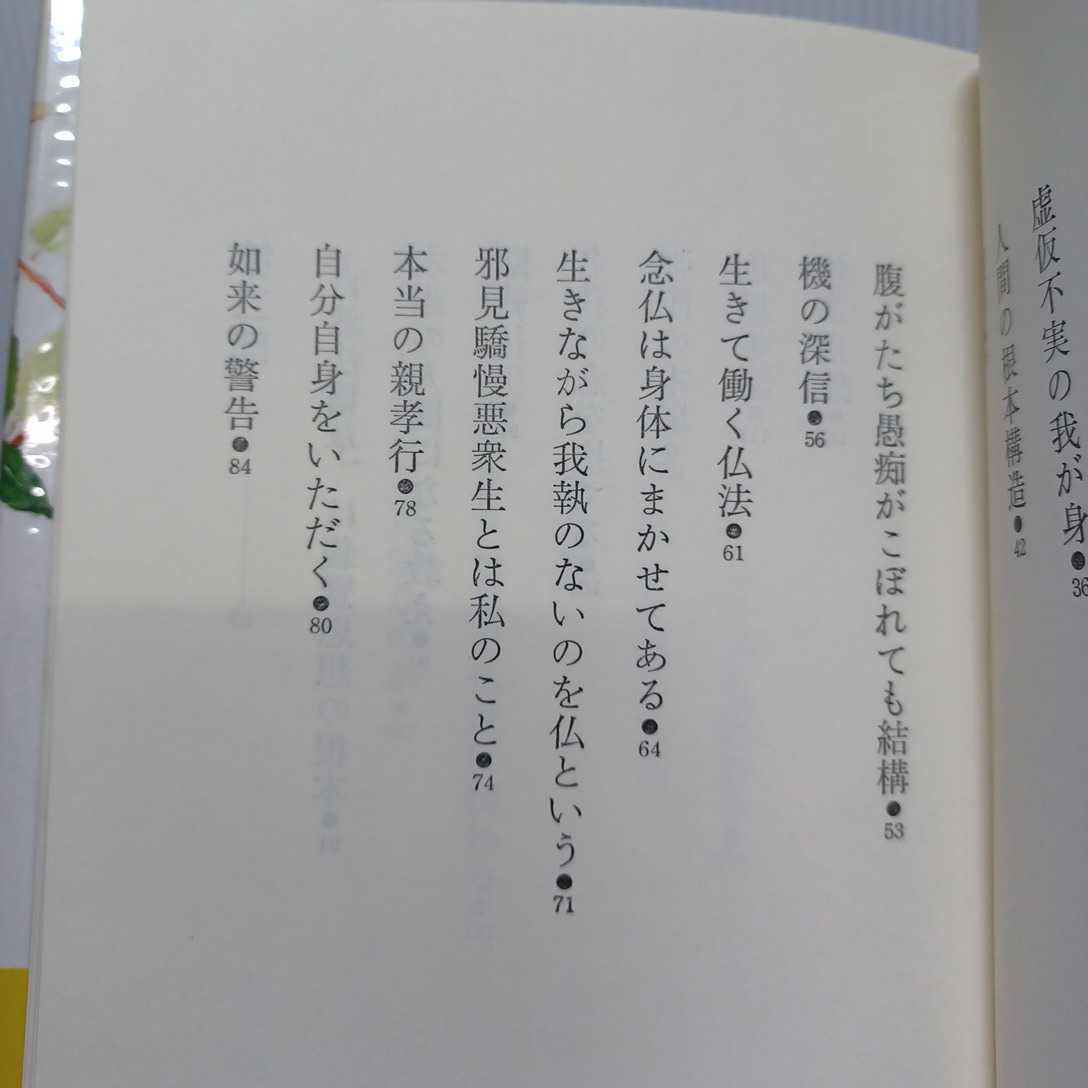 虚仮不実の我が身●36
人間の根本構造●42
腹がたち愚痴がこぼれても結構●53
機の深信●56
生きて働く仏法●61
念仏は身体にまかせてある●64
生きながら我執のないのを仏という●71
邪見驕慢悪衆生とは私のこと●74
本当の親孝行●78
自分自身をいただく●80
如来の警告●84